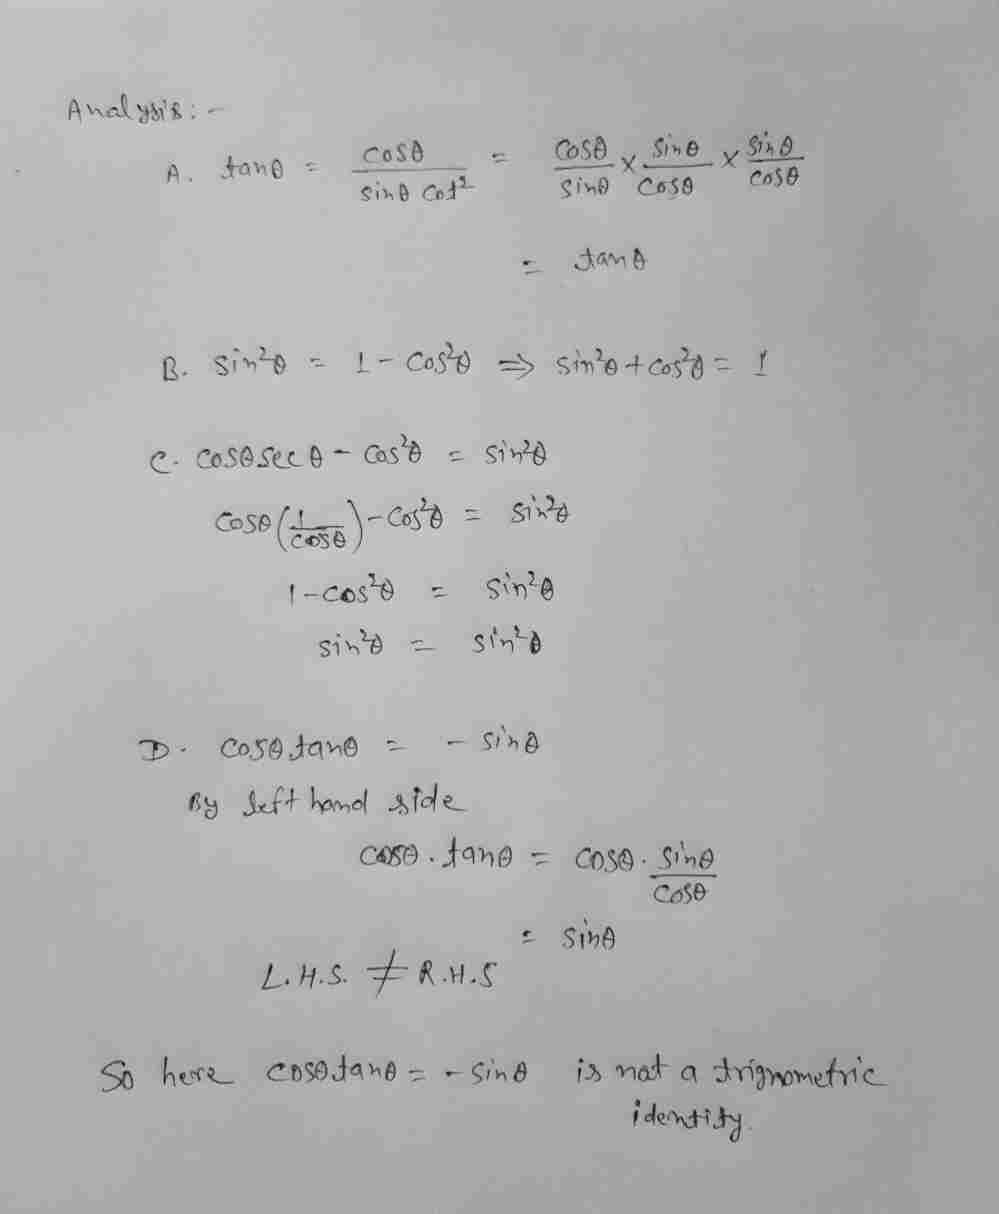 Analysis :-
A. tanθ = cosθ / sinθ cot² = cosθ/sinθ × sinθ/cosθ × sinθ/cosθ
= tanθ
B. sin²θ = 1 - cos²θ ⇒ sin²θ + cos²θ = 1
C. cosθ secθ - cos²θ = sin²θ
cosθ (1/cosθ) - cos²θ = sin²θ
1 - cos²θ = sin²θ
sin²θ = sin²θ
D. cosθ.tanθ = - sinθ
By left hand side
cosθ . tanθ = cosθ . sinθ/cosθ
= sinθ
L.H.S. ≠ R.H.S
So here cosθtanθ = - sinθ is not a trignometric
identity.